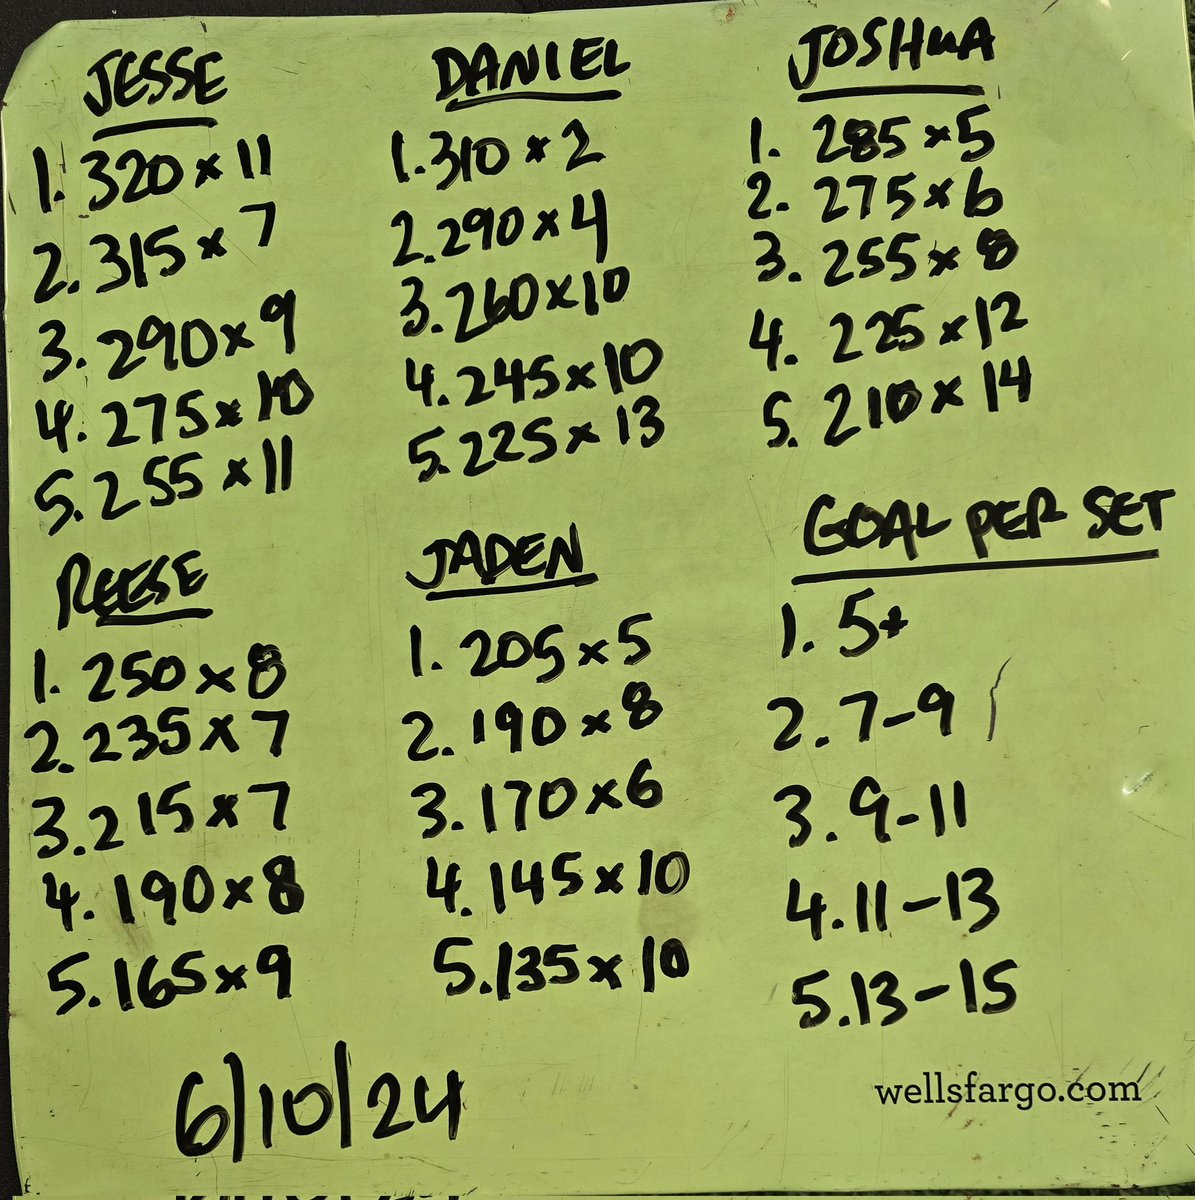 JESSE
1. 320 x 11
2. 315 x 7
3. 290 x 9
4. 275 x 10
5. 255 x 11
DANIEL
1. 310 x 2
2. 290 x 4
3. 260 x 10
4. 245 x 10
5. 225 x 13
JOSHUA
1. 285 x 5
2. 275 x 6
3. 255 x 8
4. 225 x 12
5. 210 x 14
REESE
1. 250 x 8
2. 235 x 7
3. 215 x 7
4. 190 x 8
5. 165 x 9
JADEN
1. 205 x 5
2. 190 x 8
3. 170 x 6
4. 145 x 10
5. 135 x 10
GOAL PER SET
1. 5+
2. 7-9
3. 9-11
4. 11-13
5. 13-15
6/10/24
wellsfargo.com